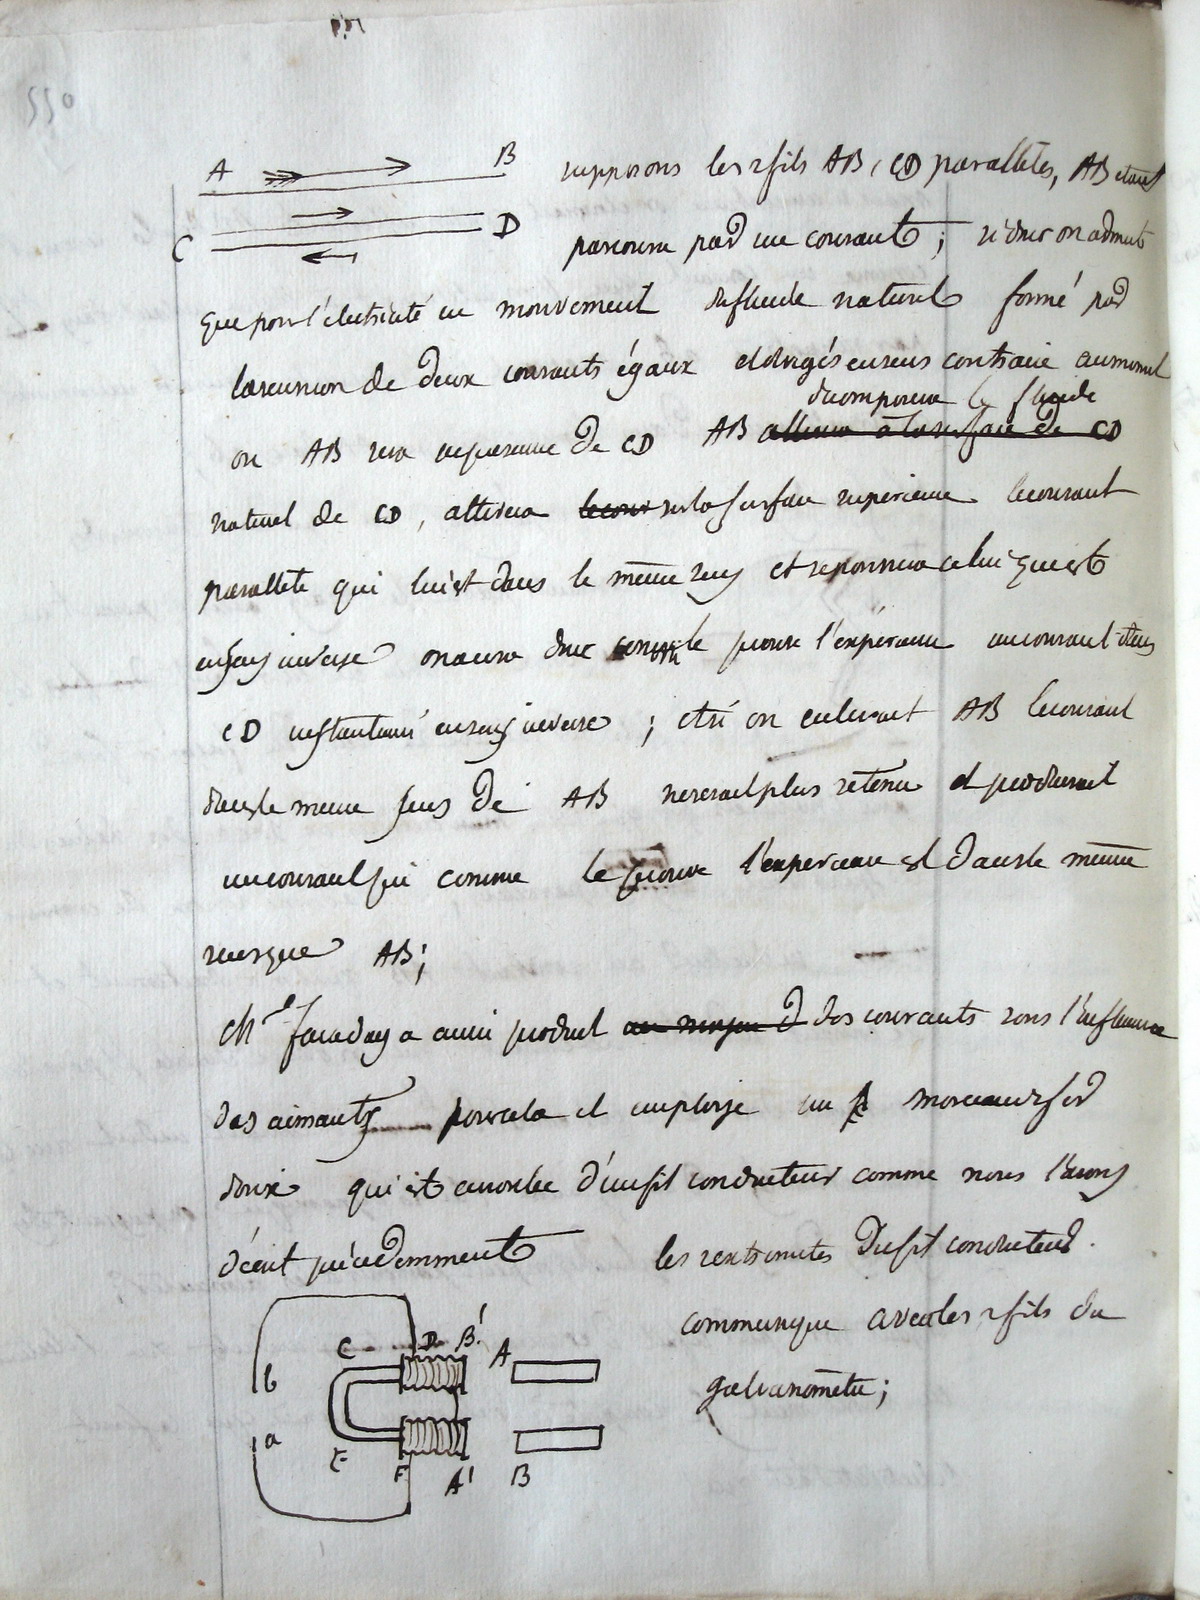 A B supposons les 2 fils AB, CD parallèles, AB etant
C D parcouru par un courant ; si donc on admet
que pour l'électricité en mouvement du fluide naturel formé par
la reunion de deux courants égaux et dirigés en sens contraire au moment
decomposera le fluide
ou AB sera de CD AB attirera à la surface de CD
naturel de CD, attirera le cour sur la surface superieure le courant
parallele qui lui est dans le même sens et repoussera celui qui est
en sens inverse on aura donc comme le prouve l'expérience un courant dans
CD instantané en sens inverse ; et si on enlevait AB le courant
dans le meme sens de AB ne serait plus retenu et produirait
un courant qui comme le prouve l'experience est dans le même
sens que AB ;
Mr faraday a aussi produit au moyen d des courants sous l'influence
des aimants pour cela il employe un morceau de fer
doux qui est entouré d'un fil conducteur comme nous l'avons
décrit précédemment les extremites du fil conducteur.
communique avec les 2 fils du
galvanomètre ;
C D B' A
b
a
E F A' B